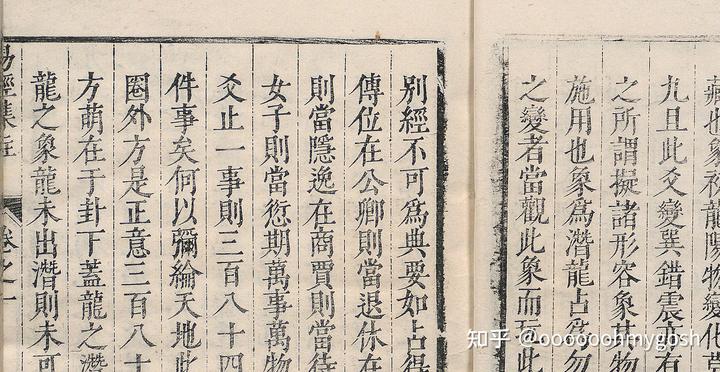 藏也象初龍陽物變化
九且此爻變巽錯震亦有
之所謂擬諸形容象其物
施用也象爲潛龍占爲勿
之變者當觀此象而玩此
別經不可爲典要如占得
傳位在公卿則當退休在
則當隱逸在商賈則當待
女子則當愆期萬事萬物
爻止一事則三百八十四
件事矣何以彌綸天地此
圈外方是正意三百八十
方萌在于卦下蓋龍之潛
龍之象龍未出潛則未可
易經集註 卷之一
知乎 @ooooooohmygosh